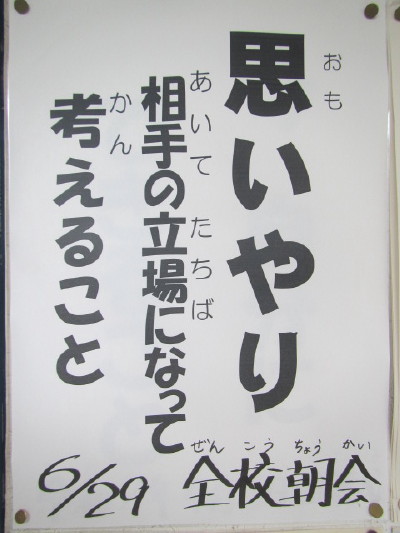 思いやり
おも
相手の立場になって
あいて たちば
考えること
かん
ぜんこうちょうかい
6/29 全校朝会